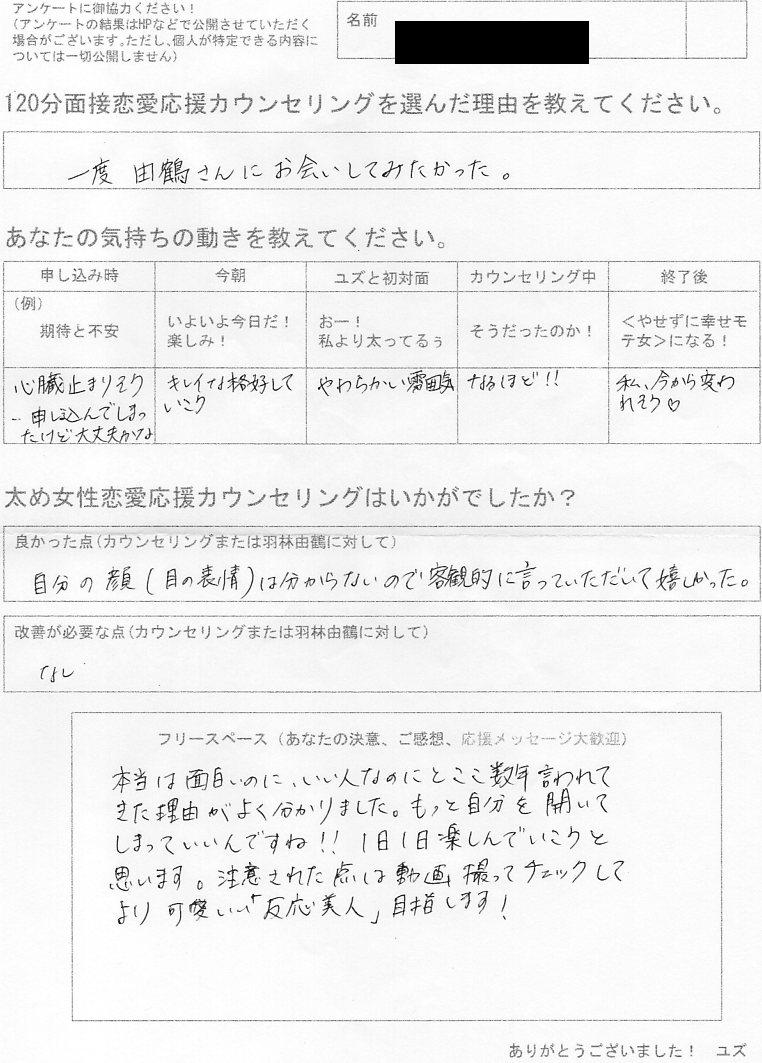 アンケートに御協力ください！
（アンケートの結果はHPなどで公開させていただく
場合がございます。ただし、個人が特定できる内容に
ついては一切公開しません）
名前
120分面接恋愛応援カウンセリングを選んだ理由を教えてください。
一度 由鶴さんに お会いしてみたかった。
あなたの気持ちの動きを教えてください。
申し込み時 今朝 ユズと初対面 カウンセリング中 終了後
（例）
期待と不安
いよいよ今日だ！
楽しみ！
おー！
私より太ってるぅ
そうだったのか！
＜やせずに幸せモ
テ女＞になる！
心臓止まりそう
…申し込んでしまっ
たけど大丈夫かな
キレイな格好して
いこう
やわらかい雰囲気
なるほど!!
私、今から変わ
れそう♡
太め女性恋愛応援カウンセリングはいかがでしたか？
良かった点（カウンセリングまたは羽林由鶴に対して）
自分の顔（目の表情）は分からないので客観的に言っていただいて嬉しかった。
改善が必要な点（カウンセリングまたは羽林由鶴に対して）
なし
フリースペース（あなたの決意、ご感想、応援メッセージ大歓迎）
本当は面白いのに、いい人なのにとここ数年言われて
きた理由がよく分かりました。もっと自分を開いて
しまっていいんですね!! 1日1日楽しんでいこうと
思います。注意された点は動画撮ってチェックして
より可愛いい「反応美人」目指します！
ありがとうございました！ ユズ